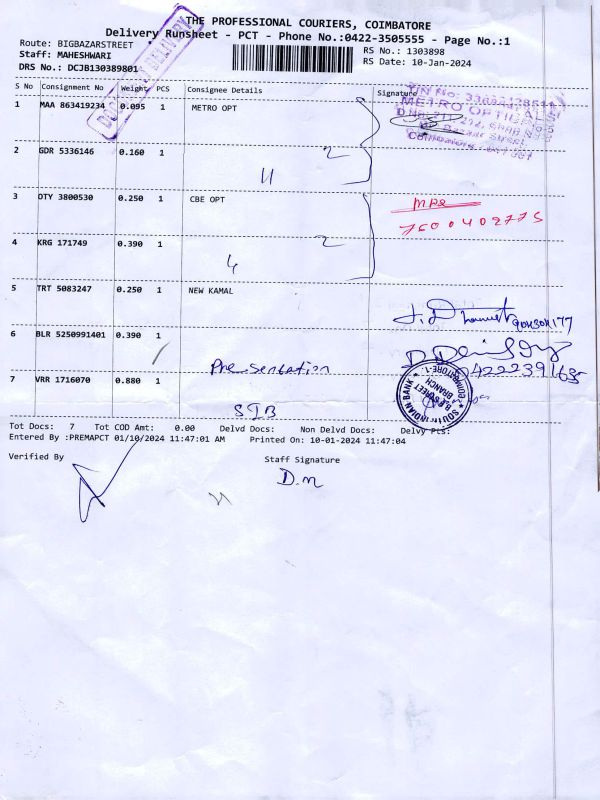 THE PROFESSIONAL COURIERS, COIMBATORE
Delivery Runsheet - PCT - Phone No.:0422-3505555 - Page No.:1
Route: BIGBAZARSTREET
RS No.: 1303898
Staff: MAHESHWARI
RS Date: 10-Jan-2024
DRS No.: DCJB130389801
S No Consignment No Weight PCS Consignee Details Signature
1 MAA 863419234 0.095 1 METRO OPT
2 GDR 5336146 0.160 1
2
11
3 DTY 3800530 0.250 1 CBE OPT
7500402775
4 KRG 171749 0.390 1
2
4
5 TRT 5083247 0.250 1 NEW KAMAL
6 BLR 5250991401 0.390 1
Presentation
7 VRR 1716070 0.880 1
SIB
SOUTH INDIAN BANK
BRANCH
COIMBATORE-1
Tot Docs: 7 Tot COD Amt: 0.00 Delvd Docs: Non Delvd Docs: Delvy Pts:
Entered By :PREMAPCT 01/10/2024 11:47:01 AM Printed On: 10-01-2024 11:47:04
Verified By Staff Signature
D.M